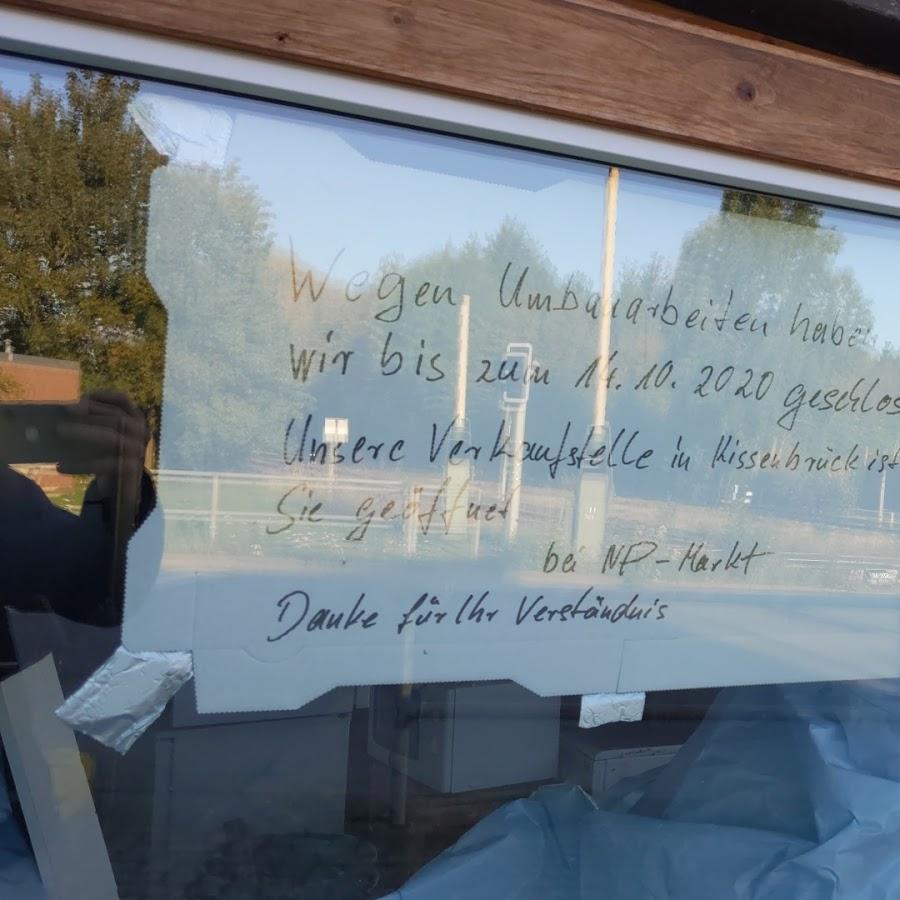 Wegen Umbauarbeiten habe
wir bis zum 14.10.2020 geschlos
Unsere Verkaufstelle in Kissenbrück ist
Sie geöffnet
bei NP-Markt
Danke für Ihr Verständnis